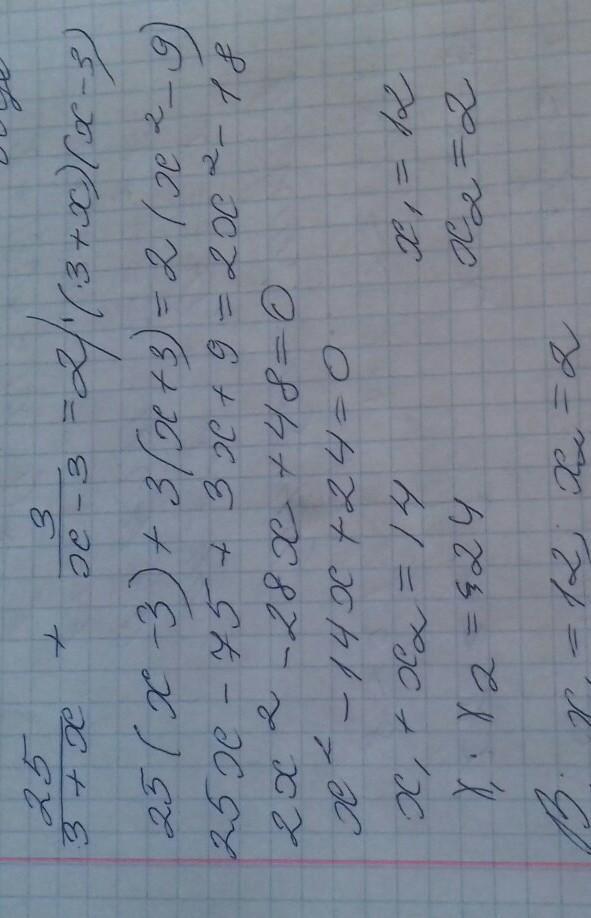 25/(3+x) + 3/(x-3) = 2 |·(3+x)(x-3)
25(x-3)+3(x+3)=2(x²-9)
25x-75+3x+9=2x²-18
2x²-28x+48=0
x²-14x+24=0
x₁+x₂=14 x₁=12
x₁·x₂=24 x₂=2
В: x₁=12; x₂=2